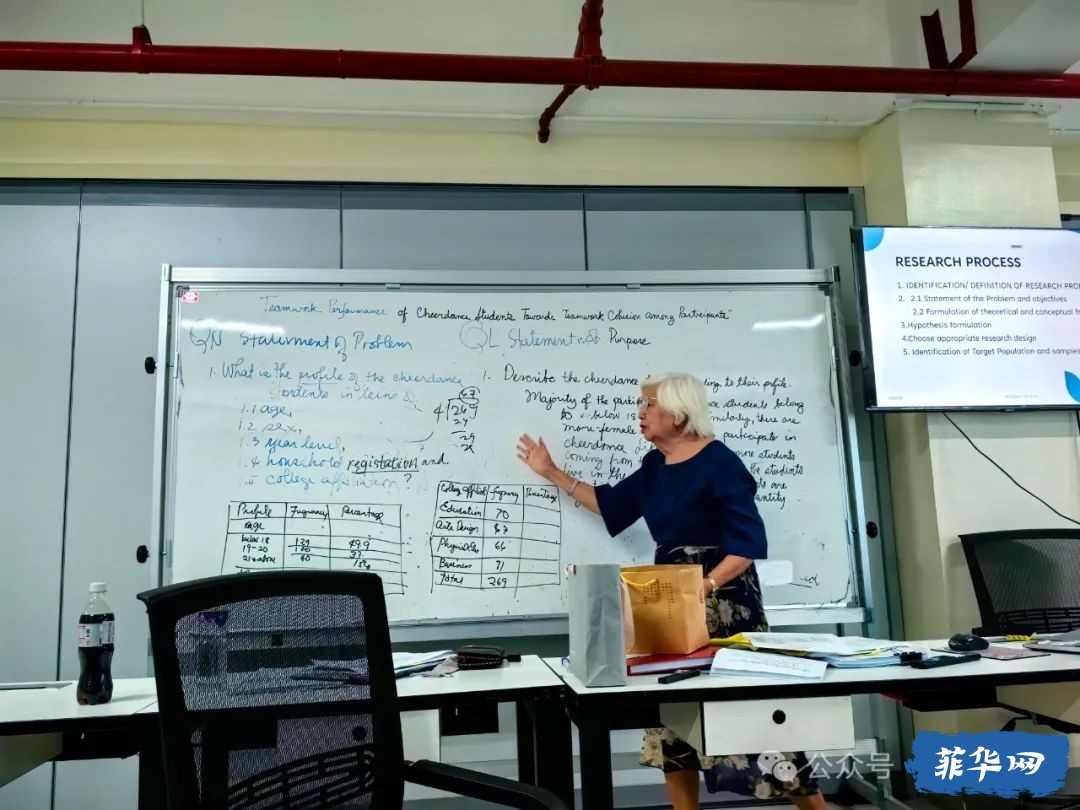 Teamwork Performance of Cheerdance Students Towards Teamwork Cohesion among Participants"
QN Statement of Problem
QL Statement of Purpose
1. What is the profile of the cheerdance
students in terms of
1.1 age,
1.2 sex,
1.3 year level,
1.4 household registration and
1.5 college affiliation?
67
4 269
24
29
28
1. Describe the cheerdance to their profile.
Majority of the students belong
below 18 similarly, there are
more female participate in
cheerdance more students
coming from the students
live in the are
Profile Frequency Percentage
age
below 18 129 49.9
19-20 100 37
21 & above 40
College Applied Frequency Percentage
Education 70
Arts Design
Physical Ed 66
Business 71
Total 269
RESEARCH PROCESS
1. IDENTIFICATION/ DEFINITION OF RESEARCH
2. 2.1 Statement of the Problem and objectives
2.2 Formulation of theoretical and conceptual
3.Hypothesis formulation
4.Choose appropriate research design
5. Identification of Target Population and samples
公众号
菲华网